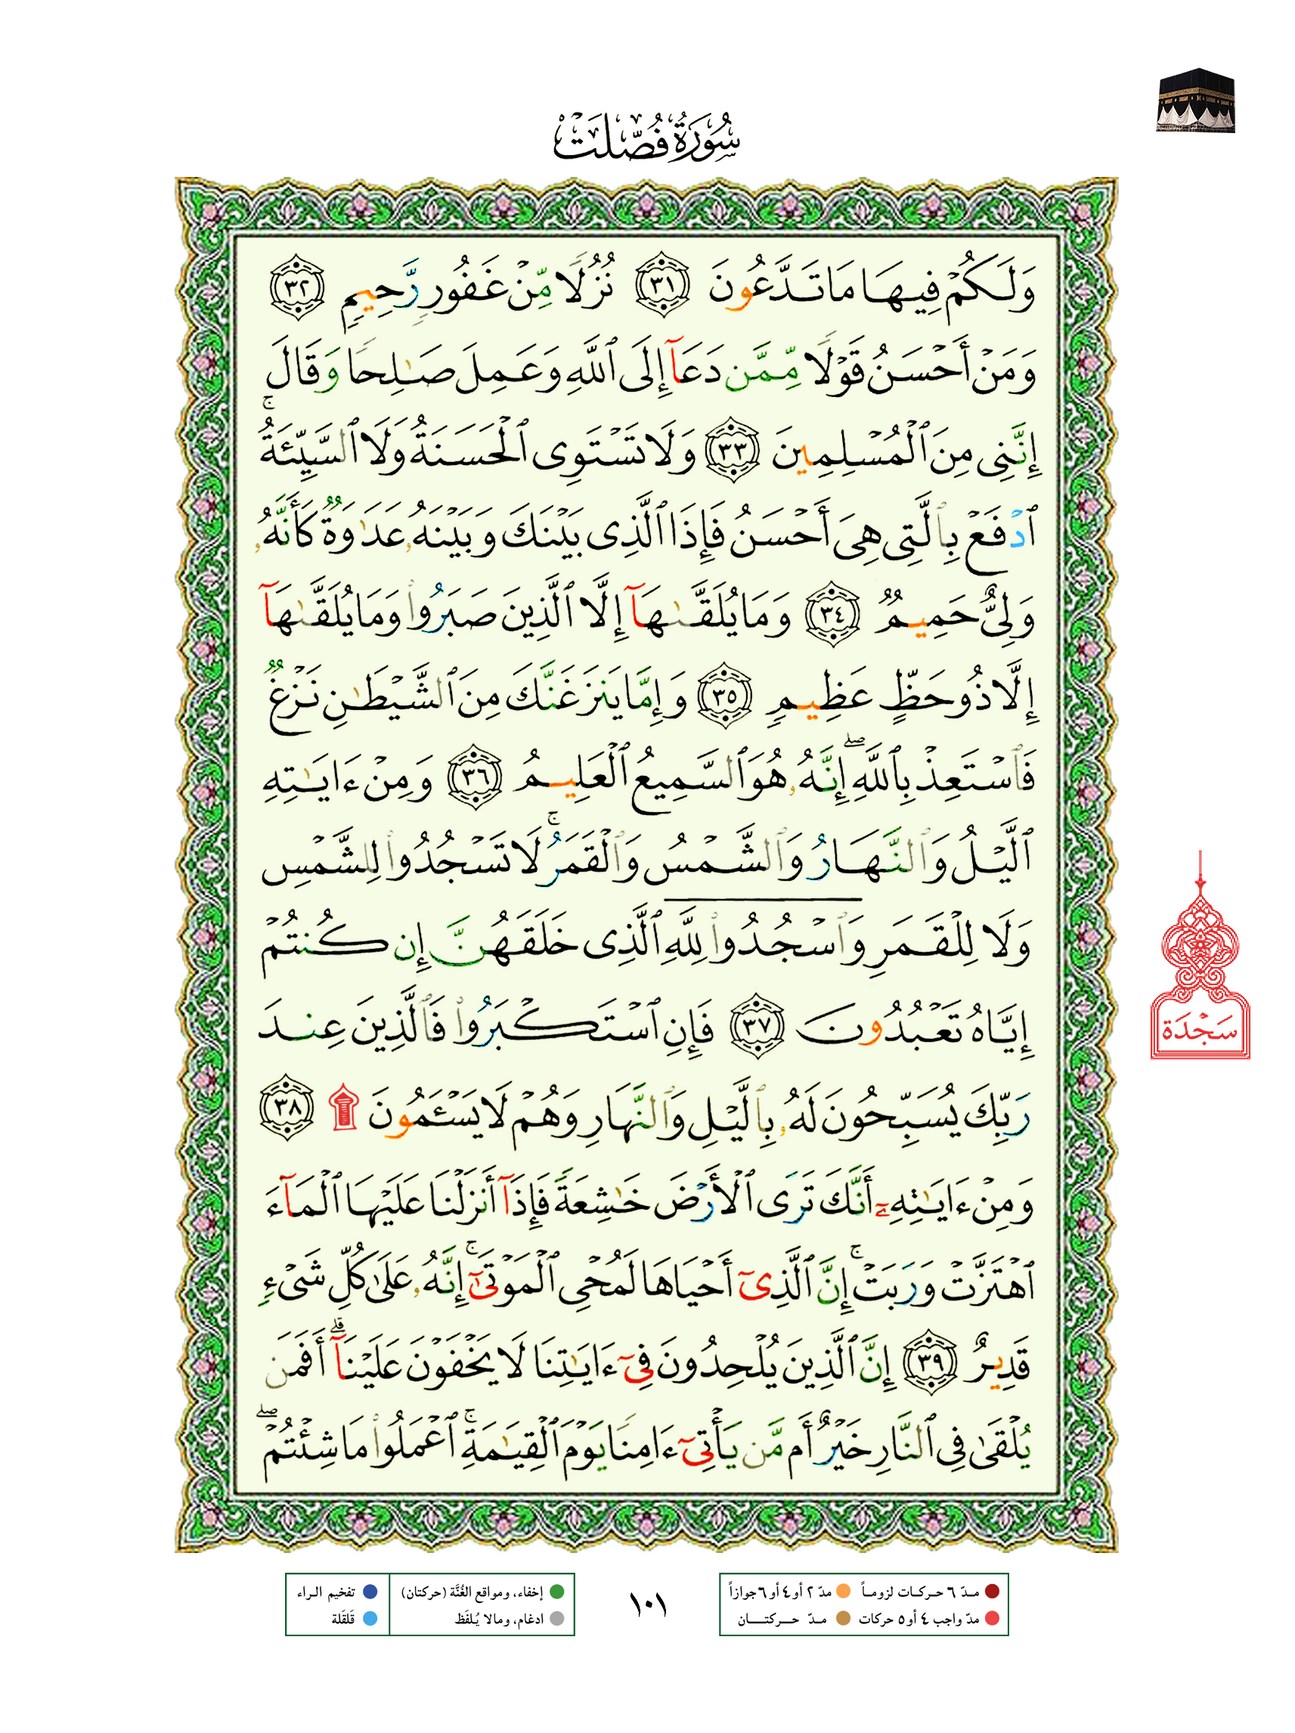 سُورَةُ فُصِّلَتْ
وَلَكُمْ فِيهَا مَا تَدَّعُونَ ٣١ نُزُلًا مِّنْ غَفُورٍ رَّحِيمٍ ٣٢
وَمَنْ أَحْسَنُ قَوْلًا مِّمَّن دَعَآ إِلَى ٱللَّهِ وَعَمِلَ صَٰلِحًا وَقَالَ
إِنَّنِى مِنَ ٱلْمُسْلِمِينَ ٣٣ وَلَا تَسْتَوِى ٱلْحَسَنَةُ وَلَا ٱلسَّيِّئَةُ ۚ
ٱدْفَعْ بِٱلَّتِى هِىَ أَحْسَنُ فَإِذَا ٱلَّذِى بَيْنَكَ وَبَيْنَهُۥ عَدَٰوَةٌ كَأَنَّهُۥ
وَلِىٌّ حَمِيمٌ ٣٤ وَمَا يُلَقَّىٰهَآ إِلَّا ٱلَّذِينَ صَبَرُوا۟ وَمَا يُلَقَّىٰهَآ
إِلَّا ذُو حَظٍّ عَظِيمٍ ٣٥ وَإِمَّا يَنزَغَنَّكَ مِنَ ٱلشَّيْطَٰنِ نَزْغٌ
فَٱسْتَعِذْ بِٱللَّهِ ۖ إِنَّهُۥ هُوَ ٱلسَّمِيعُ ٱلْعَلِيمُ ٣٦ وَمِنْ ءَايَٰتِهِ
ٱلَّيْلُ وَٱلنَّهَارُ وَٱلشَّمْسُ وَٱلْقَمَرُ ۚ لَا تَسْجُدُوا۟ لِلشَّمْسِ
وَلَا لِلْقَمَرِ وَٱسْجُدُوا۟ لِلَّهِ ٱلَّذِى خَلَقَهُنَّ إِن كُنتُمْ
إِيَّاهُ تَعْبُدُونَ ٣٧ فَإِنِ ٱسْتَكْبَرُوا۟ فَٱلَّذِينَ عِندَ
رَبِّكَ يُسَبِّحُونَ لَهُۥ بِٱلَّيْلِ وَٱلنَّهَارِ وَهُمْ لَا يَسْـَٔمُونَ ۩ ٣٨
سَجْدَة
وَمِنْ ءَايَٰتِهِۦٓ أَنَّكَ تَرَى ٱلْأَرْضَ خَٰشِعَةً فَإِذَآ أَنزَلْنَا عَلَيْهَا ٱلْمَآءَ
ٱهْتَزَّتْ وَرَبَتْ ۚ إِنَّ ٱلَّذِىٓ أَحْيَاهَا لَمُحْىِ ٱلْمَوْتَىٰٓ ۚ إِنَّهُۥ عَلَىٰ كُلِّ شَىْءٍ
قَدِيرٌ ٣٩ إِنَّ ٱلَّذِينَ يُلْحِدُونَ فِىٓ ءَايَٰتِنَا لَا يَخْفَوْنَ عَلَيْنَآ ۗ أَفَمَن
يُلْقَىٰ فِى ٱلنَّارِ خَيْرٌ أَم مَّن يَأْتِىٓ ءَامِنًا يَوْمَ ٱلْقِيَٰمَةِ ۚ ٱعْمَلُوا۟ مَا شِئْتُمْ ۖ
مدّ ٦ حركات لزوماً مدّ ٢ أو ٤ أو ٦ جوازاً
مدّ واجب ٤ أو ٥ حركات مدّ حركتان
١٠١
إخفاء، ومواقع الغُنَّة (حركتان) تفخيم الراء
ادغام، ومالا يُلفَظ قلقلة